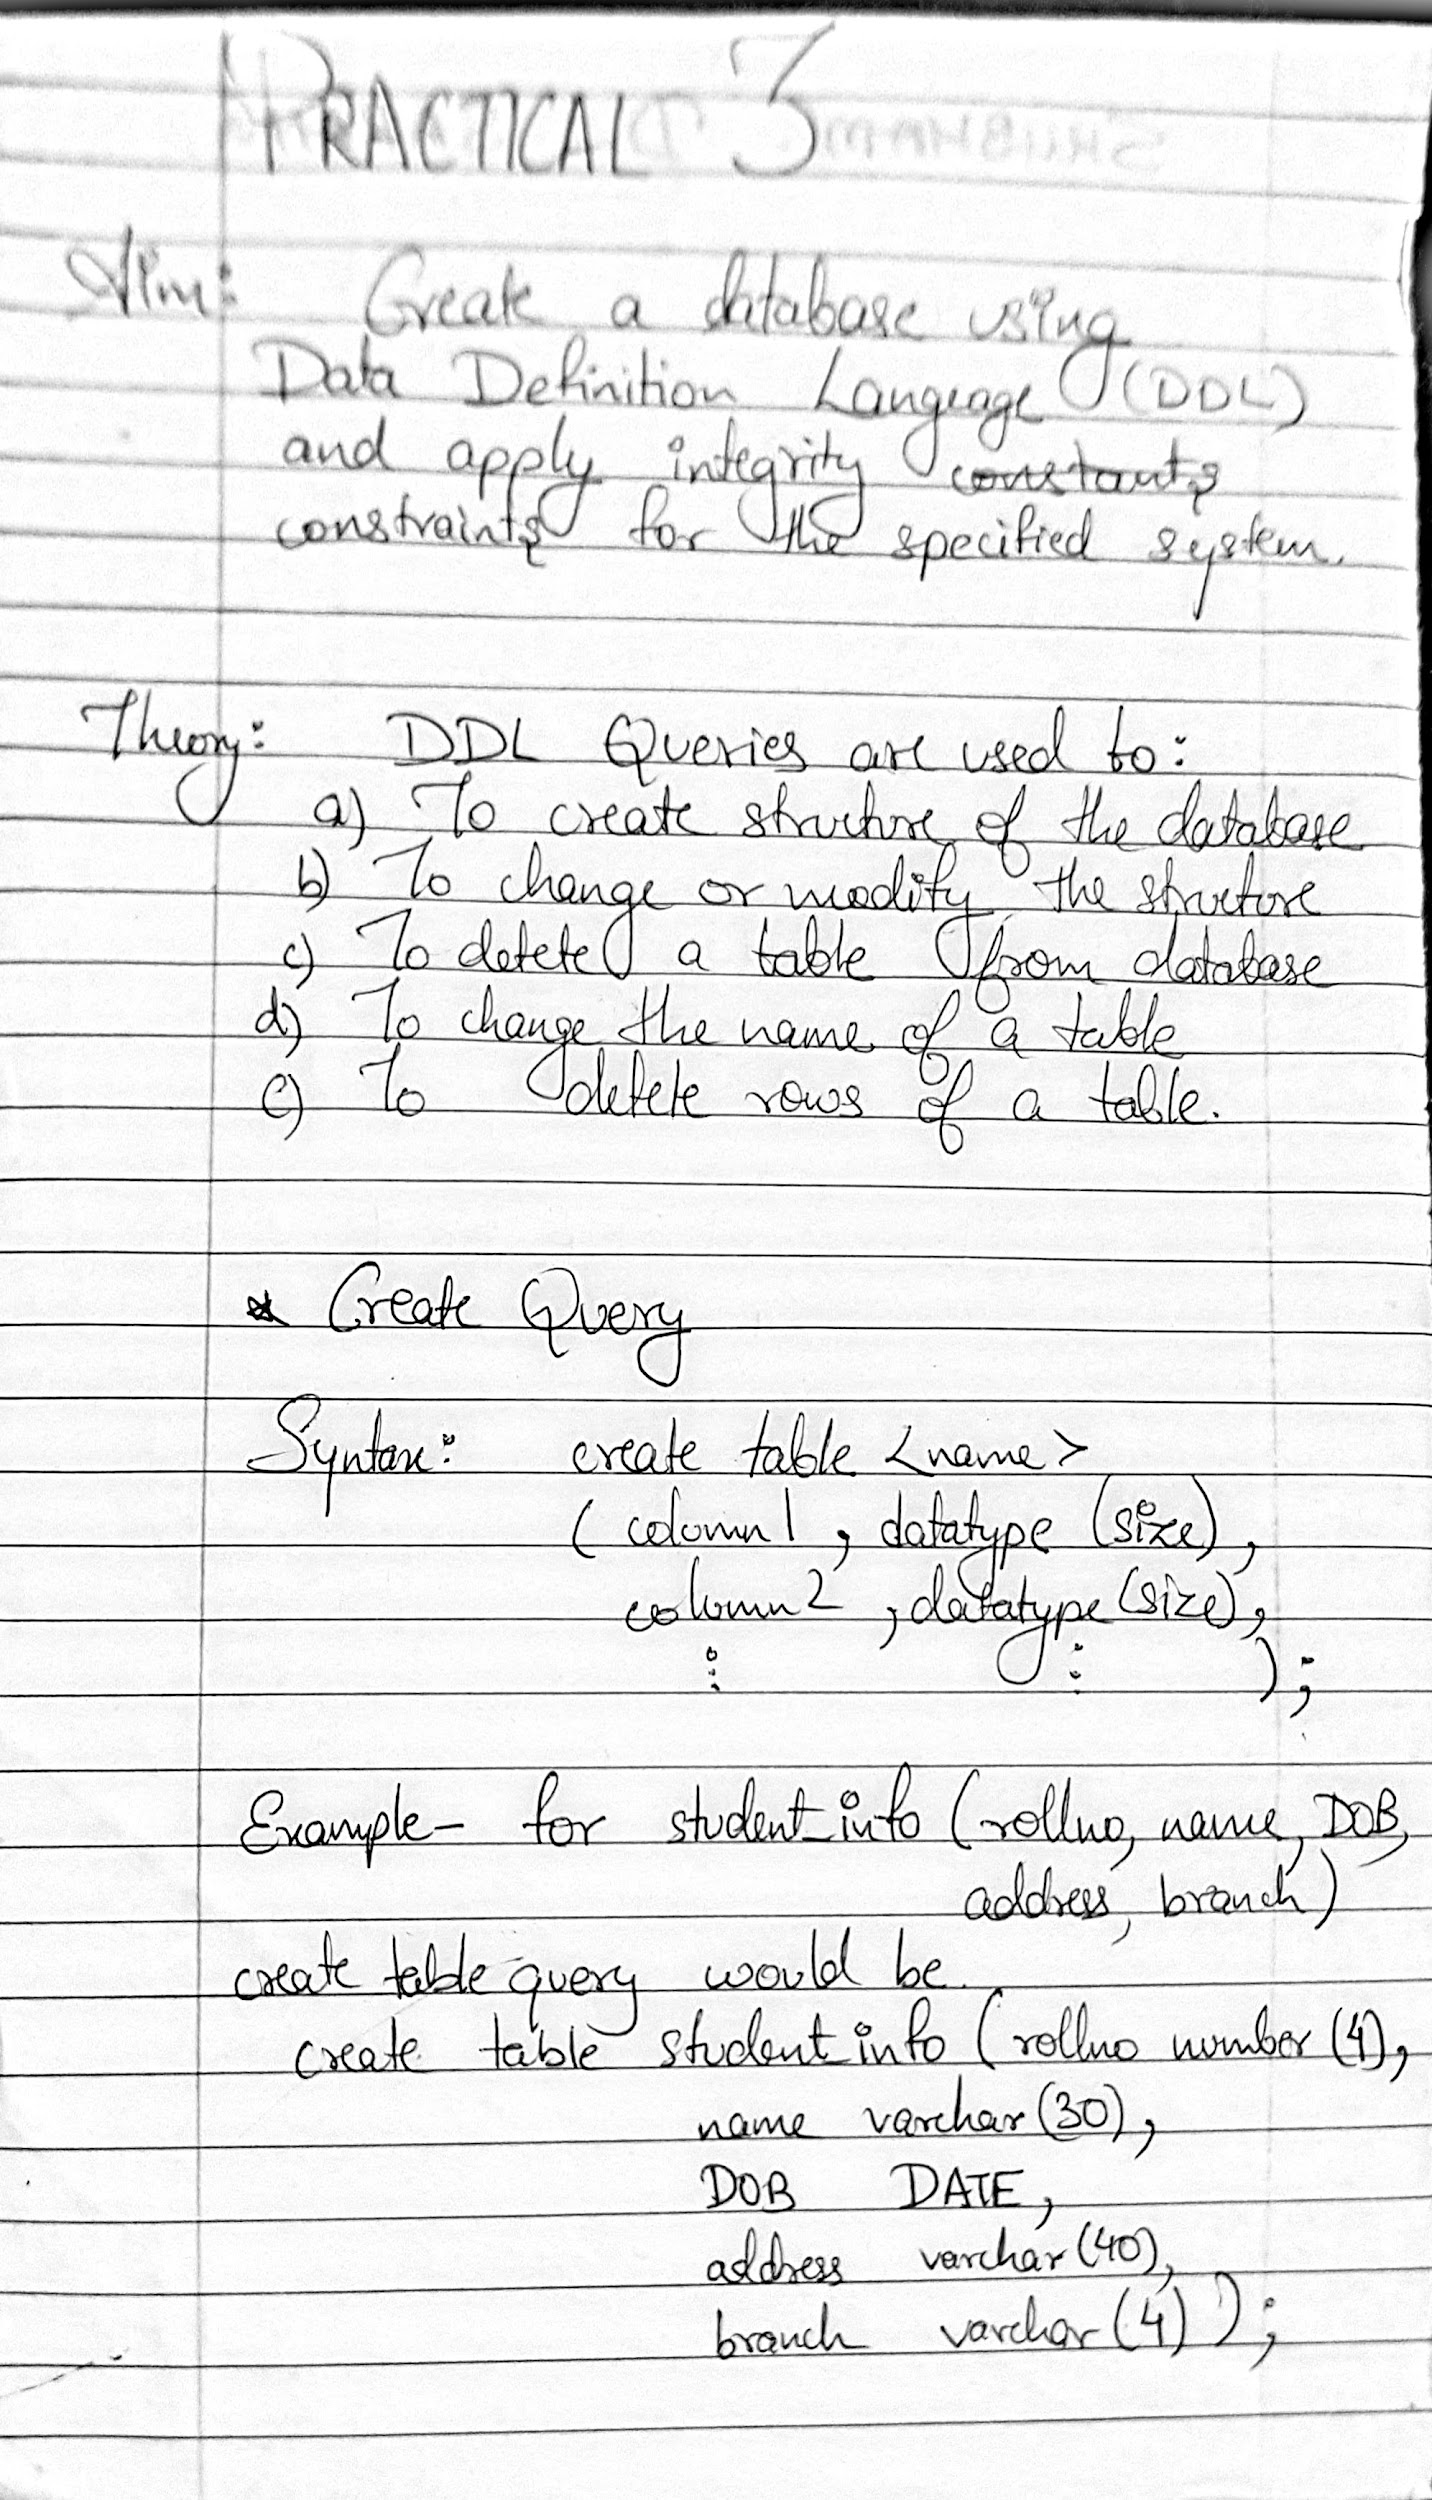 PRACTICAL 3
Aim: Create a database using
Data Definition Language (DDL)
and apply integrity constants
constraints for the specified system.
Theory: DDL Queries are used to:
a) To create structure of the database
b) To change or modify the structure
c) To delete a table from database
d) To change the name of a table
e) To delete rows of a table.
* Create Query
Syntax: create table <name>
( column1 , datatype (size),
column2 , datatype (size),
⋮ ⋮ );
Example- for student_info (rollno, name, DOB,
address, branch)
create table query would be
create table student_info (rollno number (4),
name varchar (30),
DOB DATE,
address varchar (40),
branch varchar (4) );